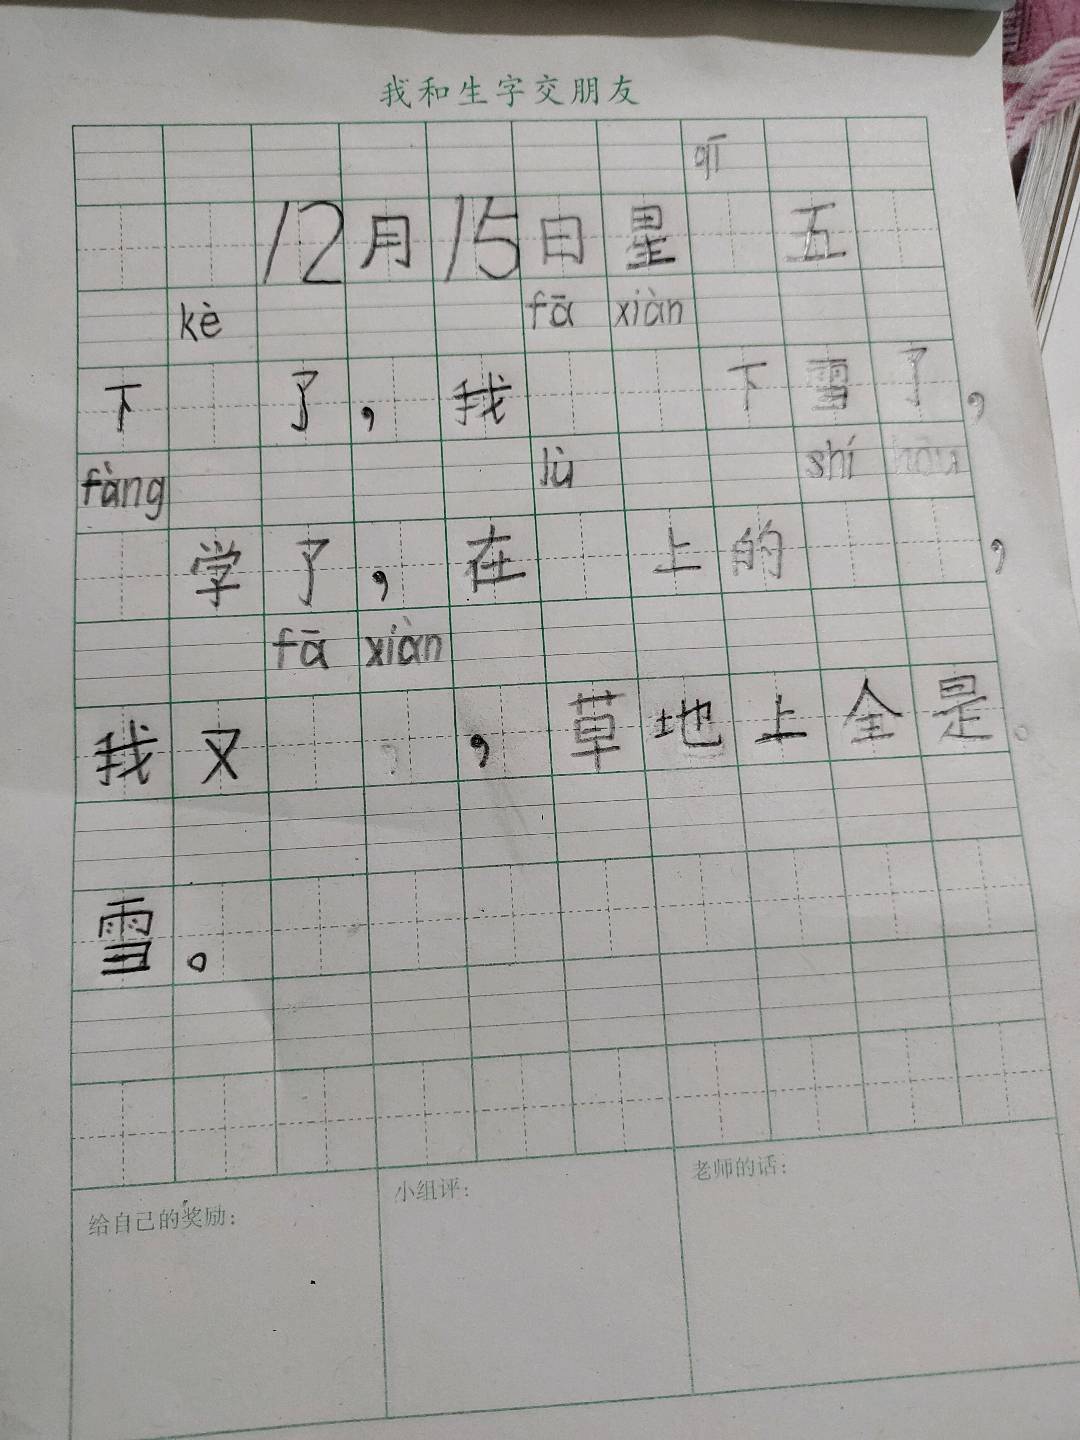 我和生字交朋友
qī
12月15日星 五
kè fā xiàn
下 了，我 下雪了，
fàng lù shí hōu
学了，在 上的 ，
fā xiàn
我又 ，草地上全是
雪。
给自己的奖励：
小组评：
老师的话：